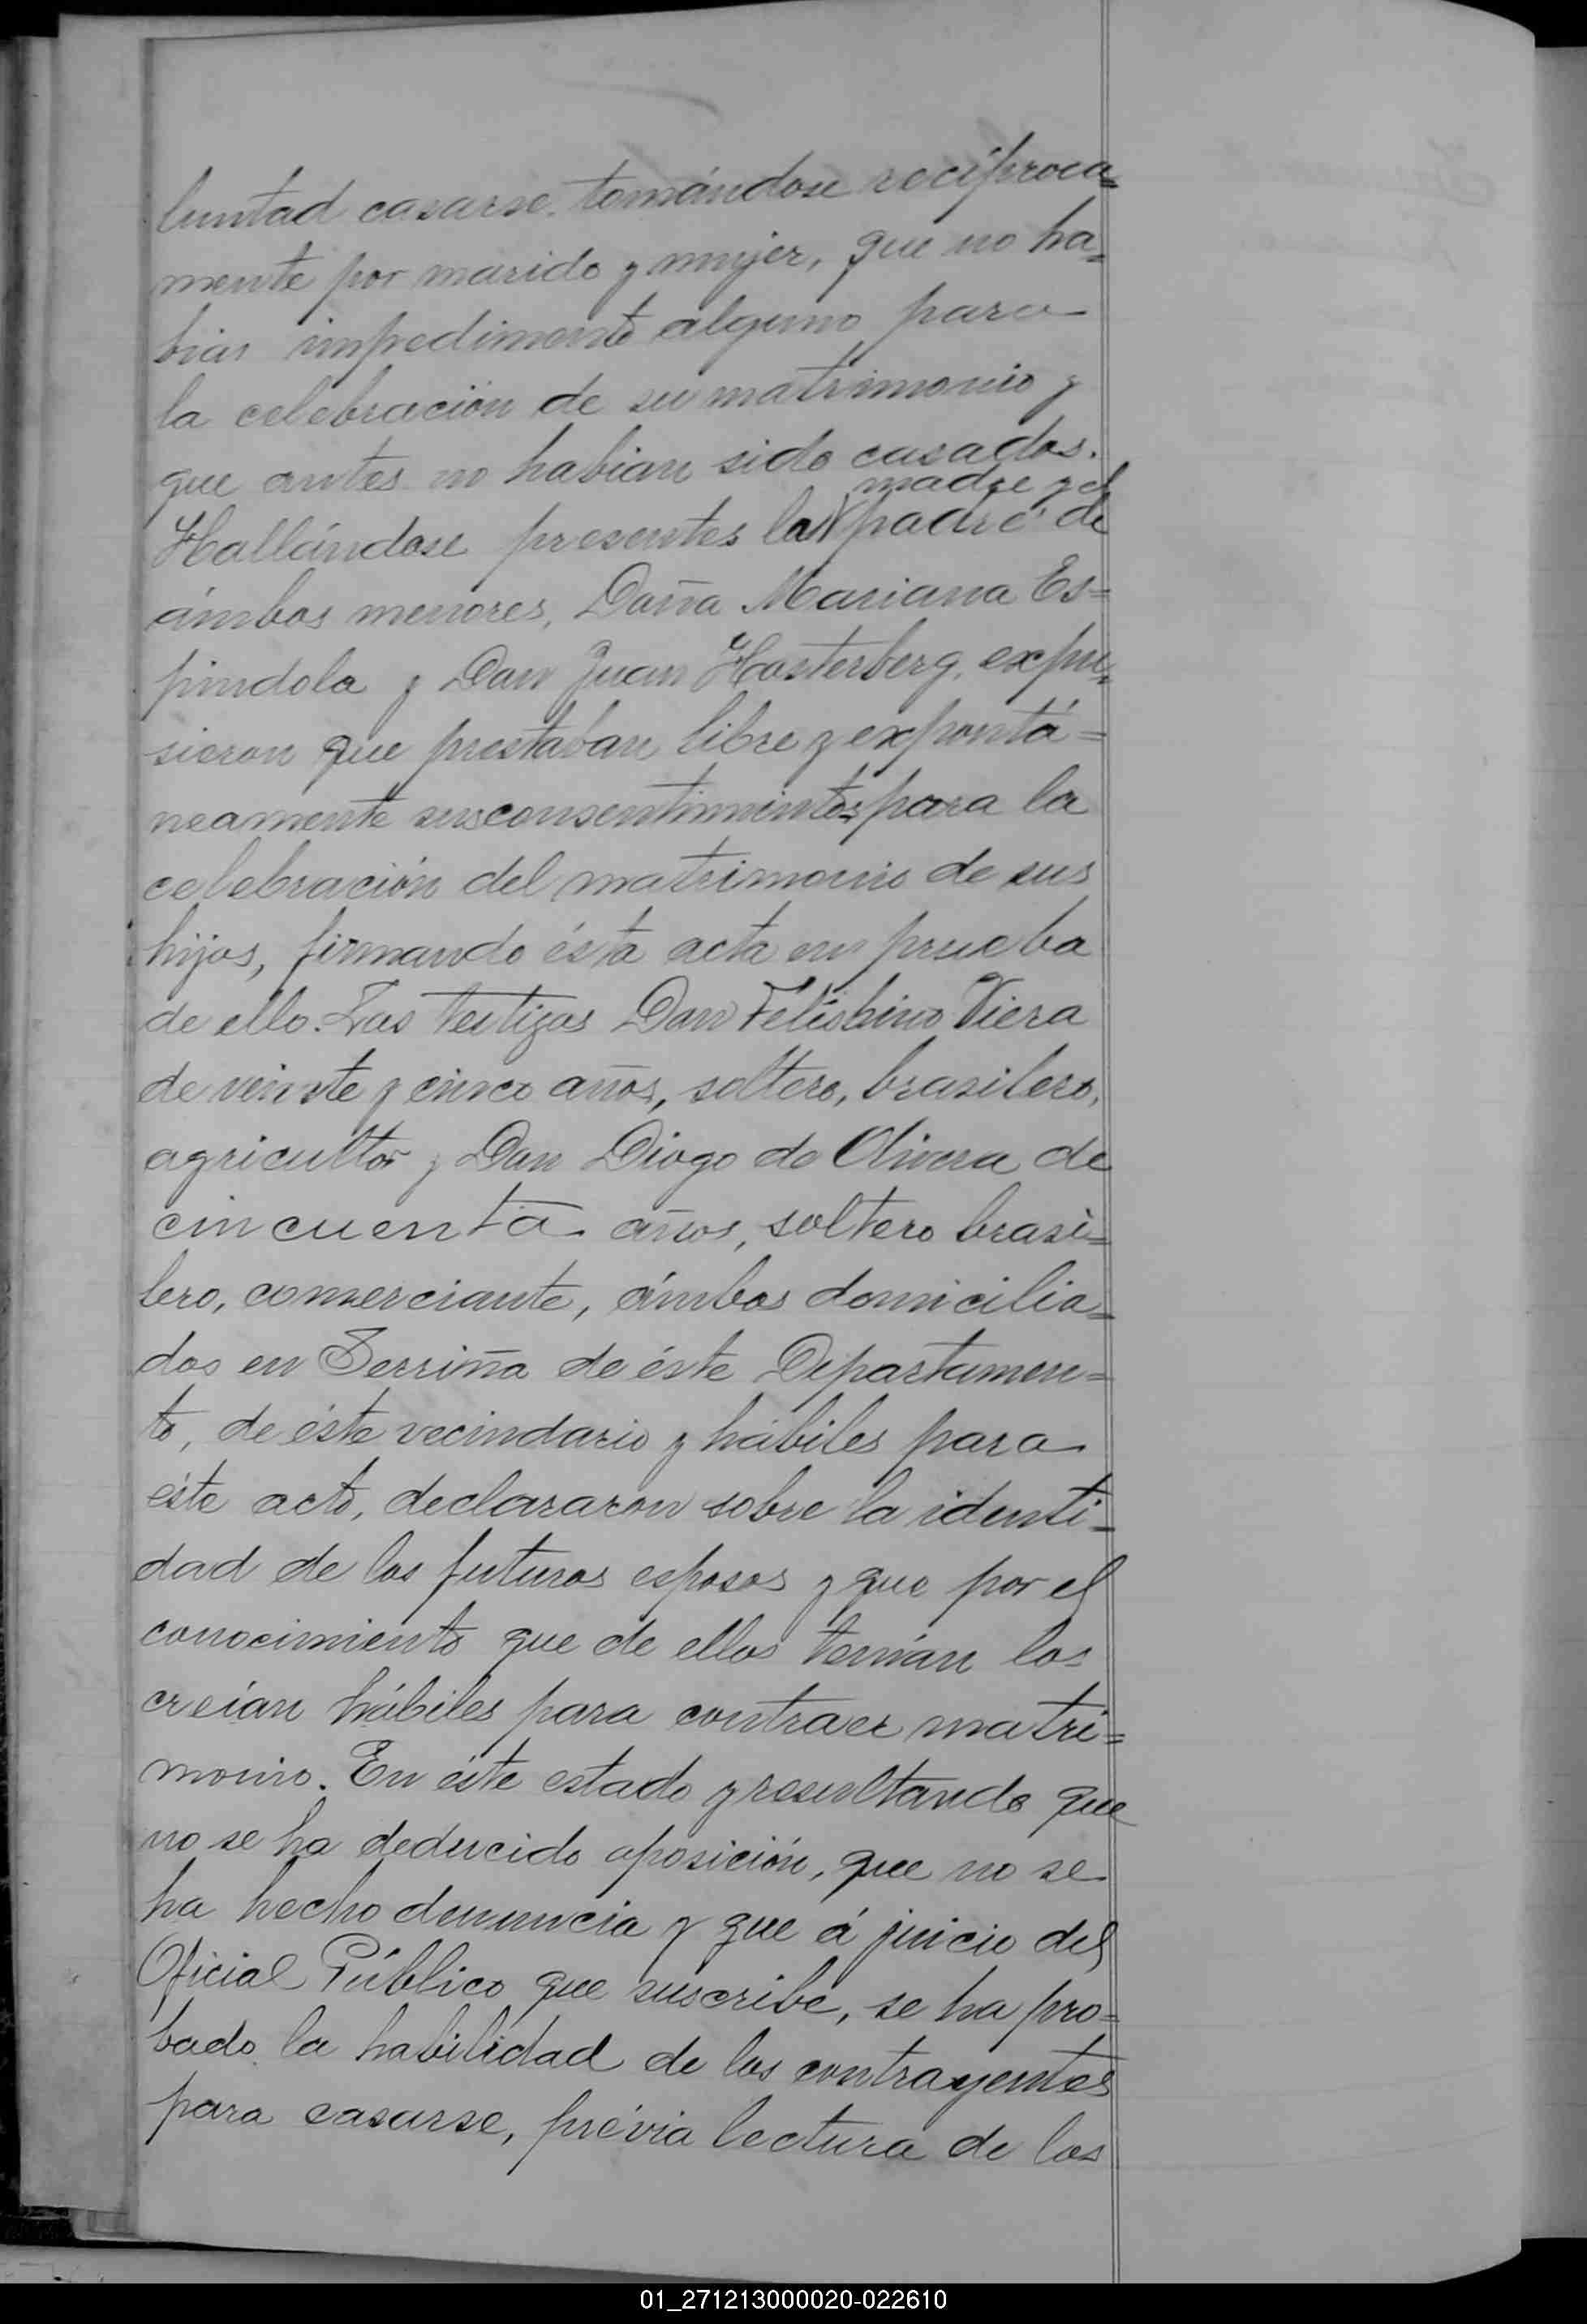 luntad casarse, tomándose recíproca=
mente por marido y mujer, que no ha=
bian impedimento alguno para
la celebración de su matrimonio y
que antes no habian sido casados.
madre y el
Hallándose presentes la padre de
ámbos menores, Doña Mariana Es=
pindola y Don Juan Hosterberg, expu=
sieron que prestaban libre y expontá=
neamente sus consentimientos para la
celebración del matrimonio de sus
hijos, firmando ésta acta en prueba
de ello. Los testigos Don Felisbino Viera
de veinte y cinco años, soltero, brasilero,
agricultor y Don Diogo de Olivera de
cincuenta años, soltero brasi=
lero, comerciante, ámbos domicilia=
dos en de éste Departamen=
to, de éste vecindario y hábiles para
éste acto, declararon sobre la identi=
dad de los futuros esposos y que por el
conocimiento que de ellos tenían los
creían hábiles para contraer matri=
monio. En éste estado y resultando que
no se ha deducido oposición, que no se
ha hecho denuncia y que á juicio del
Oficial Público que suscribe, se ha pro=
bado la habilidad de los contrayentes
para casarse, prévia lectura de los
01_271213000020-022610